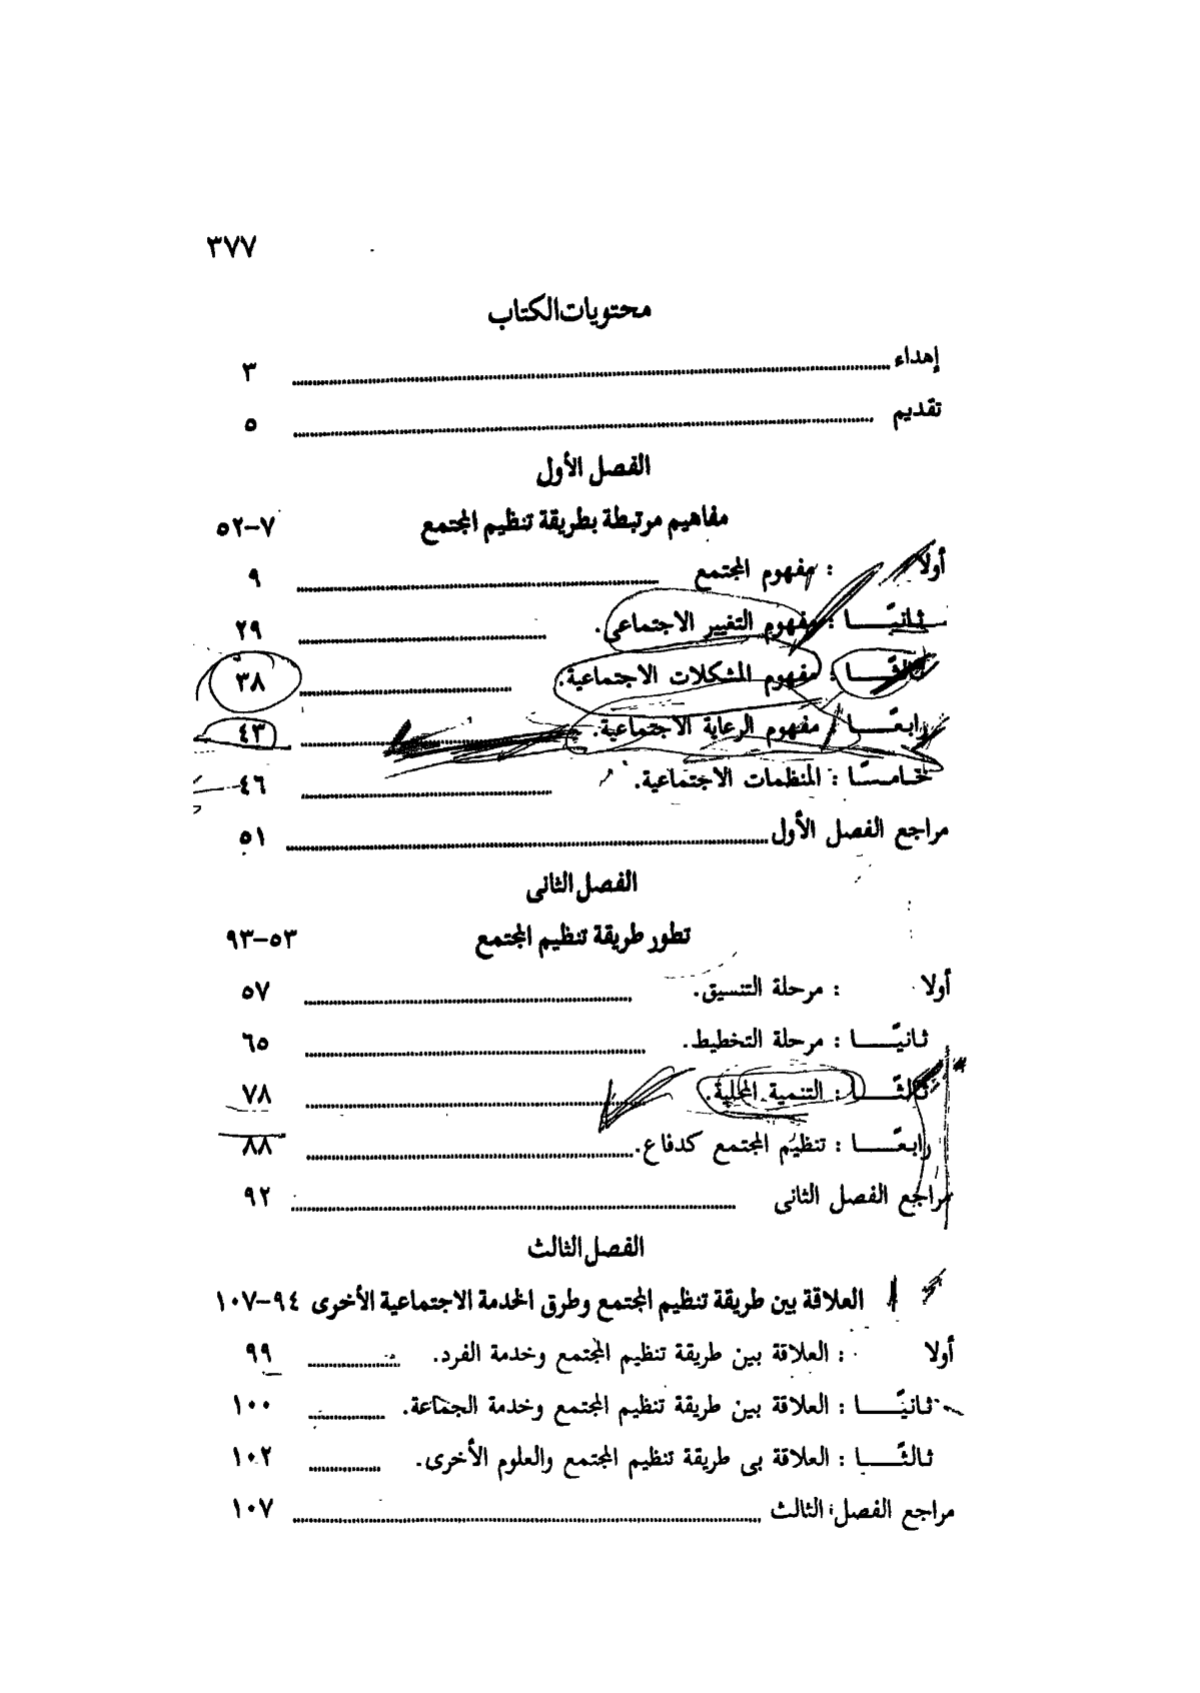 ٣٧٧
محتويات الكتاب
إهداء ........ ٣
تقديم ........ ٥
الفصل الأول
مفاهيم مرتبطة بطريقة تنظيم المجتمع ٧-٥٢
أولا : مفهوم المجتمع ........ ٩
ثانيًا : مفهوم التغيير الاجتماعى. ........ ٢٩
ثالثًا : مفهوم المشكلات الاجتماعية. ........ ٣٨
رابعًا : مفهوم الرعاية الاجتماعية. ........ ٤٣
خامسًا : المنظمات الاجتماعية. ........ ٤٦
مراجع الفصل الأول ........ ٥١
الفصل الثانى
تطور طريقة تنظيم المجتمع ٥٣-٩٣
أولا : مرحلة التنسيق. ........ ٥٧
ثانيًا : مرحلة التخطيط. ........ ٦٥
ثالثًا : التنمية المحلية. ........ ٧٨
رابعًا : تنظيم المجتمع كدفاع. ........ ٨٨
مراجع الفصل الثانى ........ ٩٢
الفصل الثالث
العلاقة بين طريقة تنظيم المجتمع وطرق الخدمة الاجتماعية الأخرى ٩٤-١٠٧
أولا : العلاقة بين طريقة تنظيم المجتمع وخدمة الفرد. ........ ٩٩
ثانيًا : العلاقة بين طريقة تنظيم المجتمع وخدمة الجماعة. ........ ١٠٠
ثالثًا : العلاقة بى طريقة تنظيم المجتمع والعلوم الأخرى. ........ ١٠٢
مراجع الفصل الثالث ........ ١٠٧